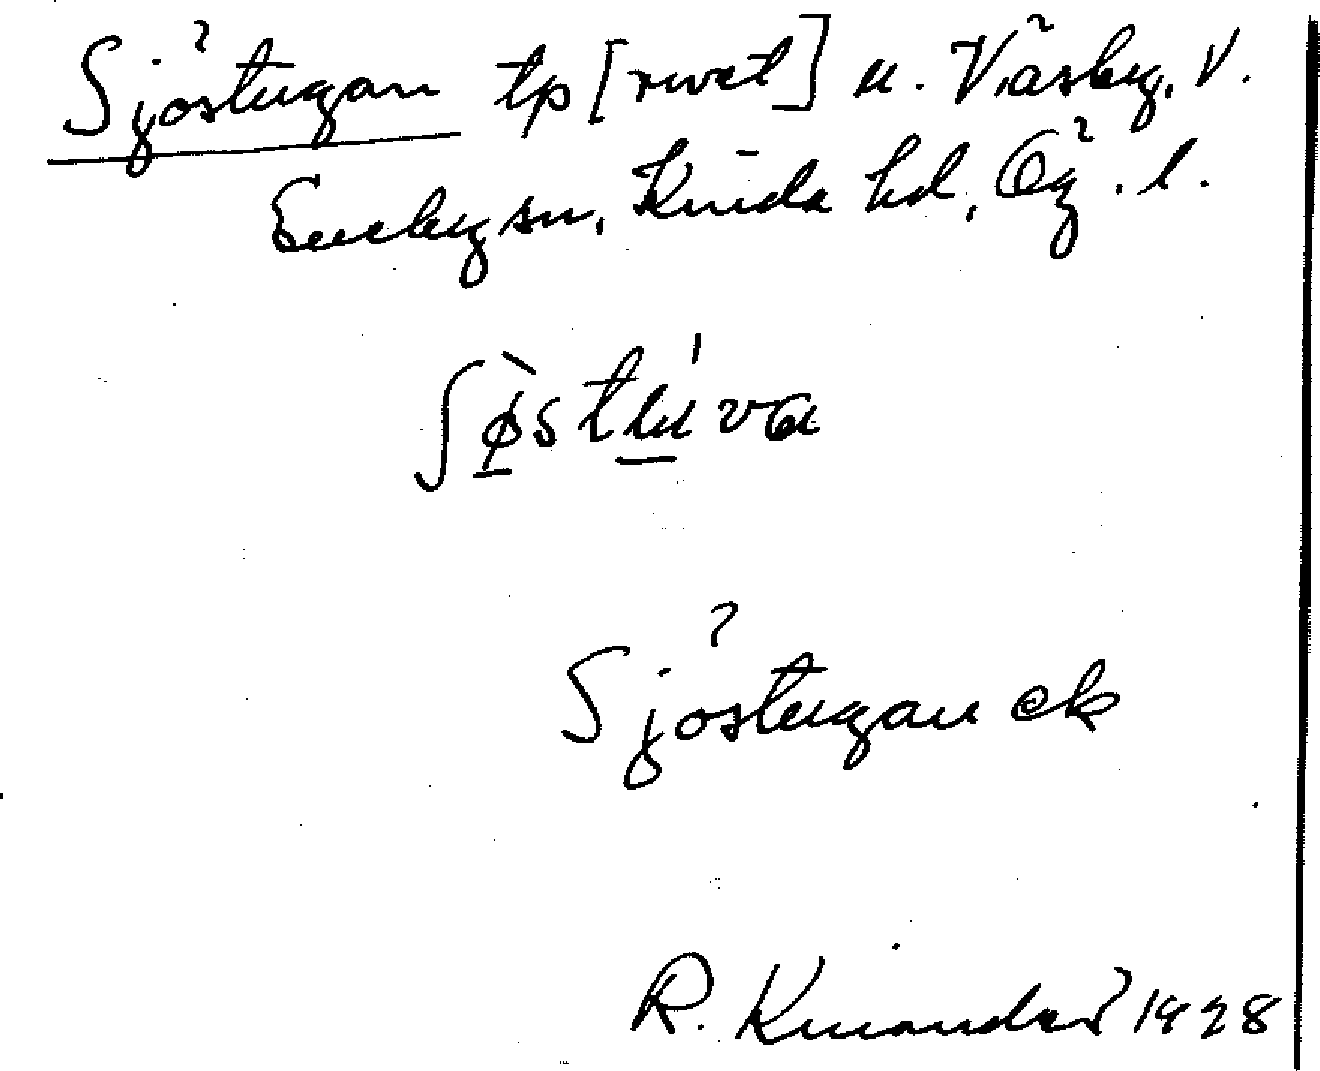 Sjöstugan tp [rivet] u. Väsby, V.
Eneby sn, Kinda hd, Ög. l.
ʃøstuva
Sjöstugan ek
R. Kinander 1928